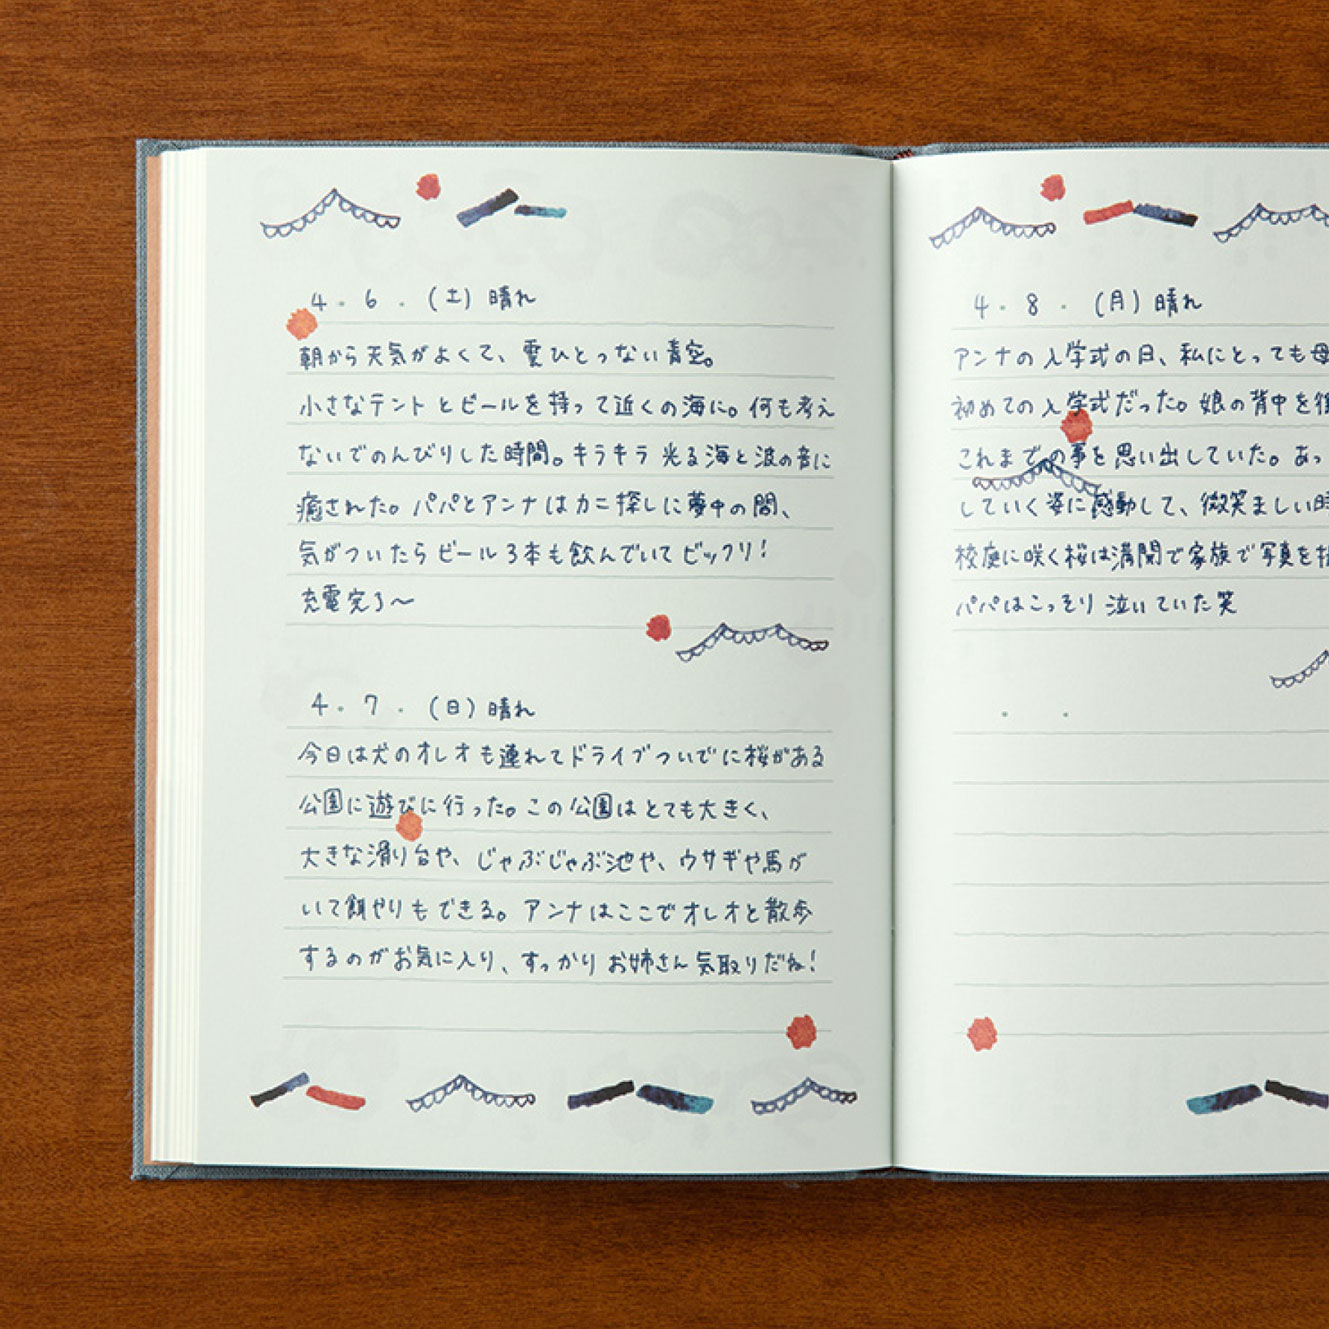 4.6.(土)晴れ
朝から天気がよくて、雲ひとつない青空。
小さなテントとビールを持って近くの海に。何も考え
ないでのんびりした時間。キラキラ光る海と波の音に
癒された。パパとアンナはカニ探しに夢中の間、
気がついたらビール3本も飲んでいてビックリ!
充電完了〜
4.7.(日)晴れ
今日は犬のオレオも連れてドライブついでに桜がある
公園に遊びに行った。この公園はとても大きく、
大きな滑り台や、じゃぶじゃぶ池や、ウサギや馬が
いて餌やりもできる。アンナはここでオレオと散歩
するのがお気に入り、すっかりお姉さん気取りだね!
4.8.(月)晴れ
アンナの入学式の日、私にとっても母
初めての入学式だった。娘の背中を後
これまでの事を思い出していた。あっ
していく姿に感動して、微笑ましい時
校庭に咲く桜は満開で家族で写真を
パパはこっそり泣いていた笑